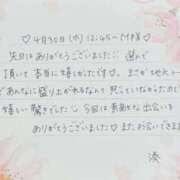 ♡4月30日(水) 12:45〜 ﾅﾅ様♡
先日はありがとうございました♡ 選んで
頂いて本当に嬉しかったです♡。まさか地元トーク
であんなに盛り上がれるなんて思っていなかったので
嬉しい驚きでした♡ 今回は素敵な出会いを
ありがとうございました♡またお会いできます
湊